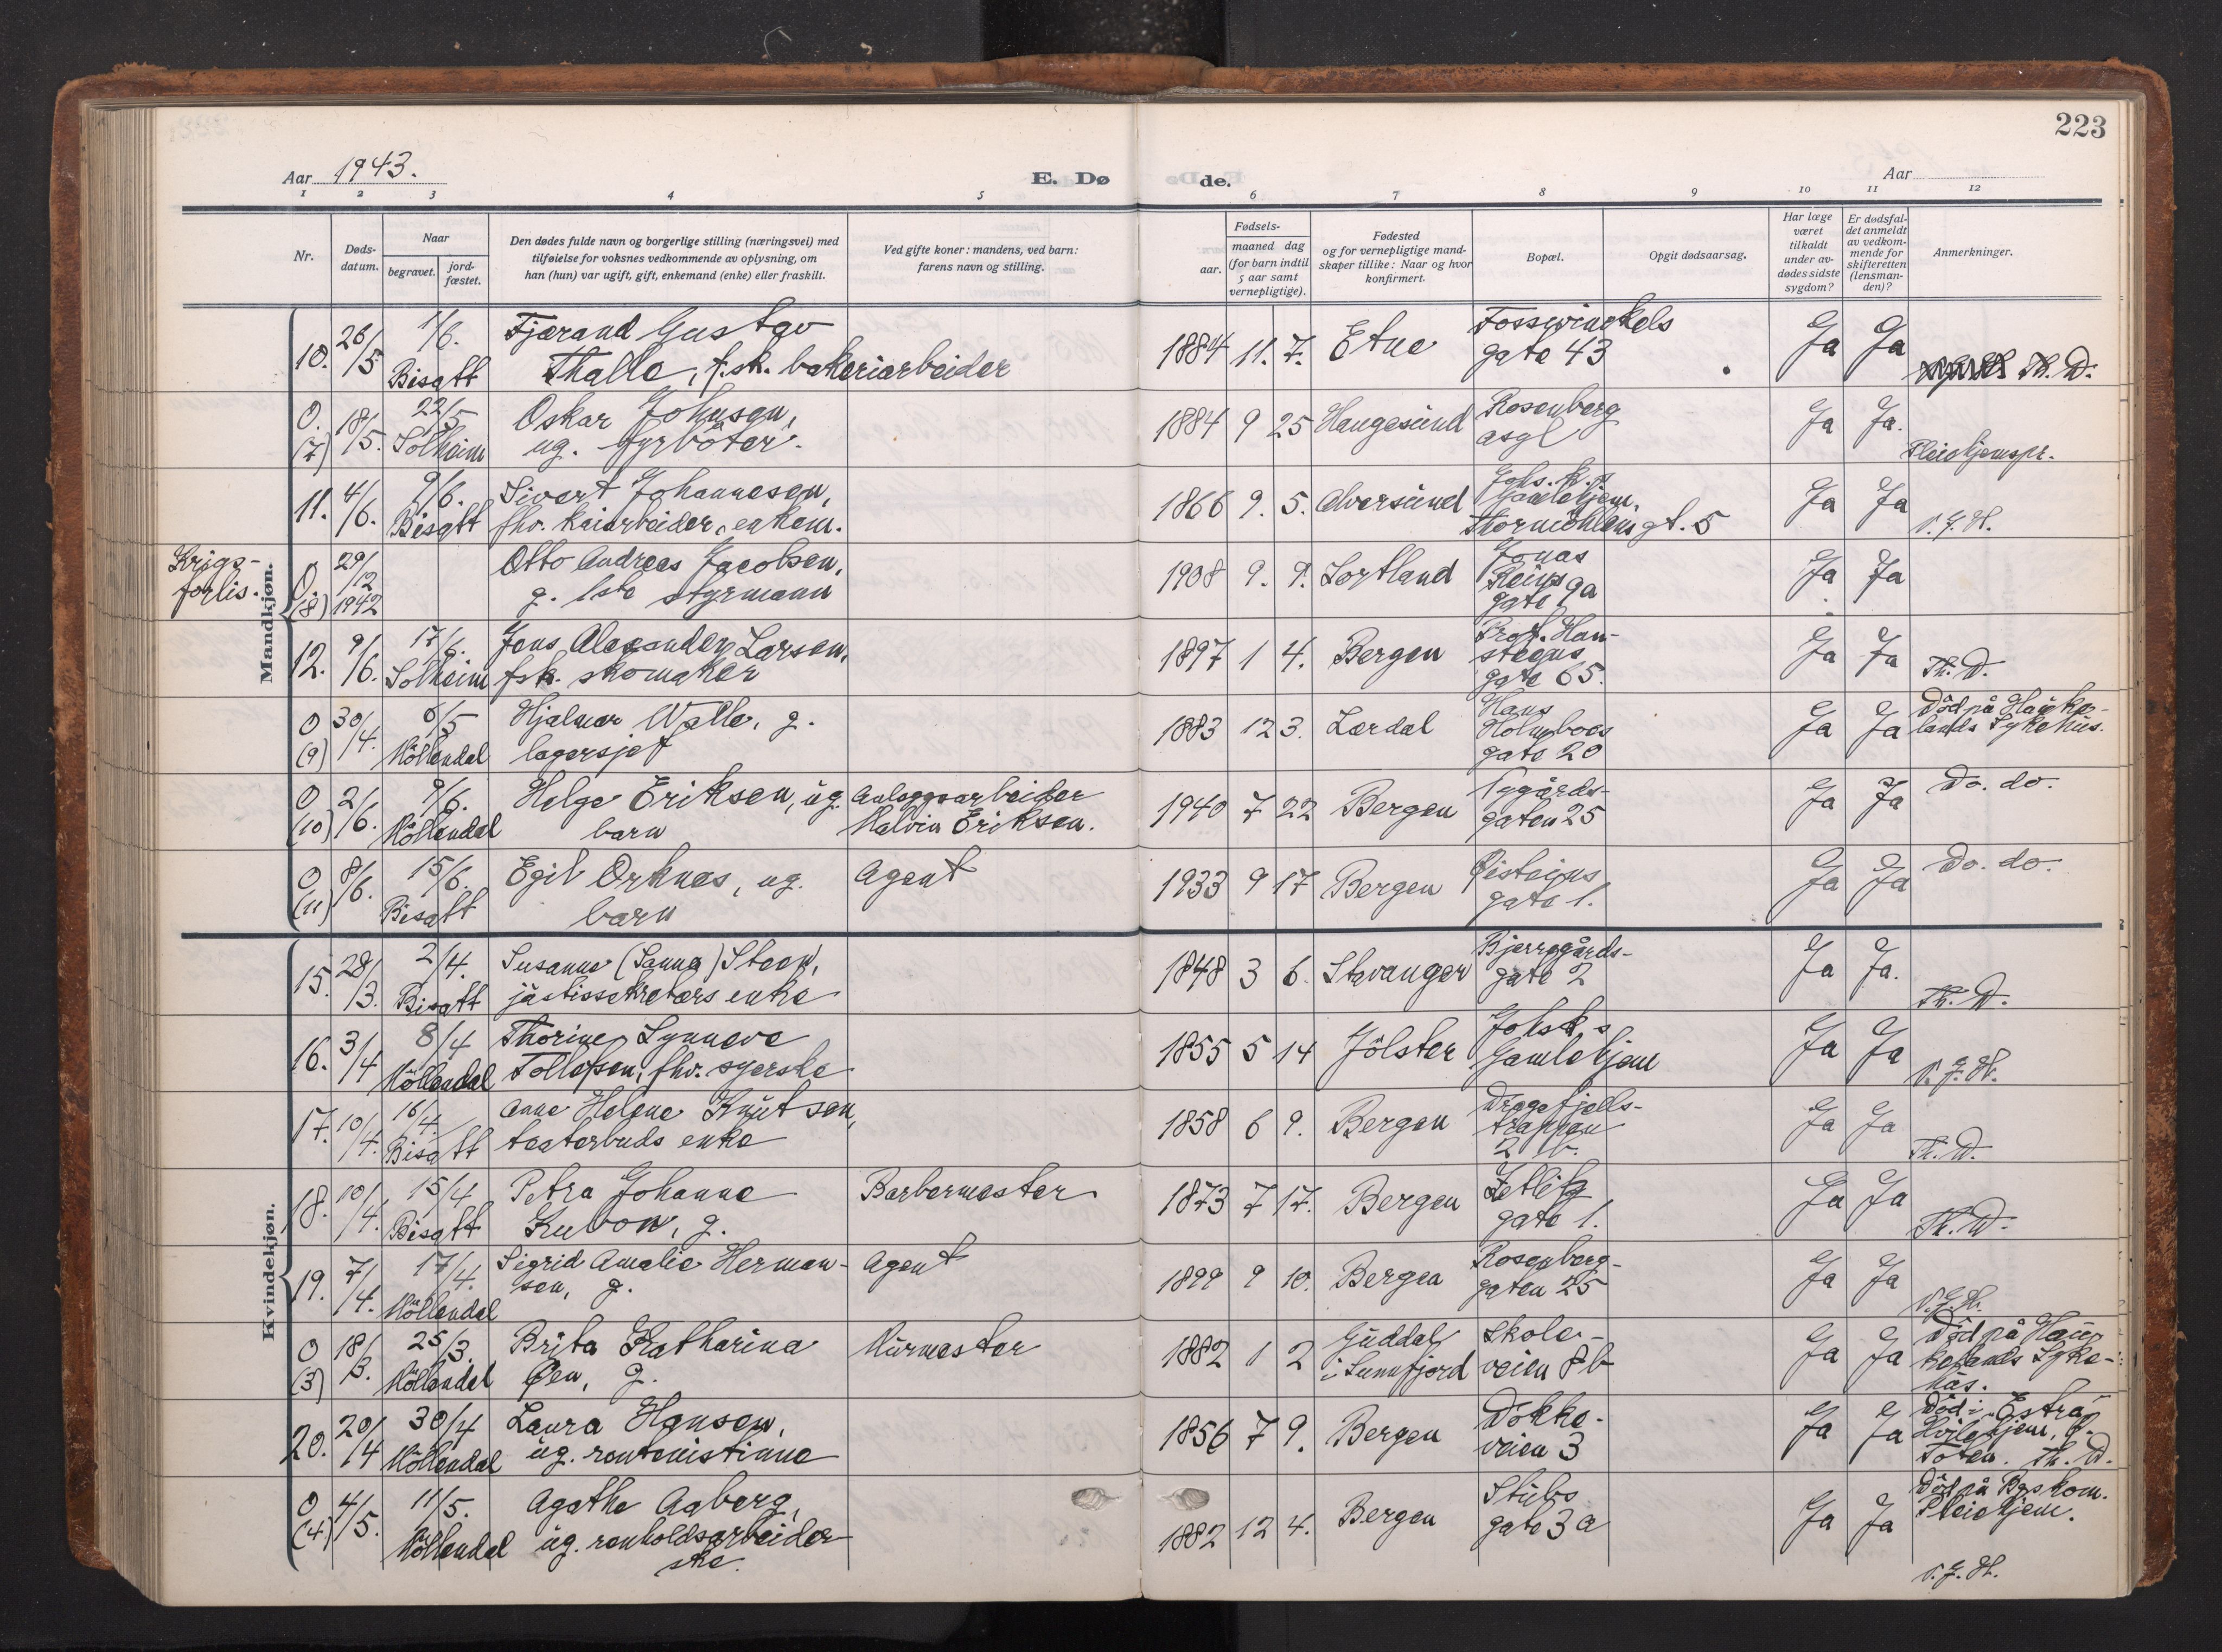 223
Aar 1943.
E. Dø
de.
Aar
1 2 3 4 5 6 7 8 9 10 11 12
Nr.
Døds-
datum.
Naar
begravet.
jord-
fæstet.
Den dødes fulde navn og borgerlige stilling (næringsvei) med
tilføielse for voksnes vedkommende av oplysning, om
han (hun) var ugift, gift, enkemand (enke) eller fraskilt.
Ved gifte koner: mandens, ved barn:
farens navn og stilling.
Fødsels-
aar.
maaned dag
(for barn indtil
5 aar samt
vernepligtige).
Fødested
og for vernepligtige mand-
skaper tillike: Naar og hvor
konfirmert.
Bopæl.
Opgit dødsaarsag.
Har læge
været
tilkaldt
under av-
dødes sidste
sygdom?
Er dødsfal-
det anmeldt
av vedkom-
mende for
skifteretten
(lensman-
den)?
Anmerkninger.
Mandkjøn.
10. 26/5 1/6. Fjærand Gustav 1884 11. 7. Etne Fosswinckels Ja Ja
Bisatt Thalle, f.sk. bakeriarbeider gate 43 Th. D.
0 18/5. 22/5 Oskar Johnsen, 1884 9 25 Haugesund Rosenberg Ja Ja.
(7) Solheim ug. fyrböter. asyl Pleiehjemspr.
11. 4/6. 9/6. Sivert Johannesen, 1866 9. 5. Alversund Johs. k. s Ja Ja
Bisatt fhv. kaiarbeider, enkem. Gamlehjem,
Thormöhlens gt. 5 V. J. H.
Krigs-
forlis.
0. 29/12 Otto Andreas Jacobsen, 1908 9. 9. Sortland Jonas Ja Ja
(8) 1942 g. 1ste styrmann Reins
gate 9a
12. 9/6. 17/6. Jens Alexander Larsen, 1897 1 4. Bergen Prof. Han- Ja Ja
Solheim fsk. skomaker steens
gate 65. Th. D.
0 30/4. 6/5 Hjalmar Valle, g. 1883 12 3. Lærdal Hans Ja Ja Död på Hauke-
(9) Möllendal lagersjef Holmboes lands Sykehus.
gate 20
0 2/6. 9/6. Helge Eriksen, ug. Anleggsarbeider 1940 7 22 Bergen Nygårds- Ja Ja Do. do.
(10) Möllendal barn Halvin Eriksen. gaten 25
0 8/6. 15/6. Egil Orknes, ug. Agent 1933 9 17 Bergen Øisteins Ja Ja Do. do.
(11) Bisatt barn gate 1.
Kvindekjøn.
15. 28/3. 2/4. Susanne (Sanna) Steen, 1848 3 6. Stavanger Bjerregårds- Ja Ja.
Bisatt justissekretærs enke gate 2 Th. D.
16. 3/4 8/4 Thorine Synneve 1855 5 14 Jölster Johsk. s Ja Ja
Möllendal Tollefsen, fhv. syerske Gamlehjem V. J. H.
17. 10/4. 16/4. Anne Helene Knutsen, 1858 6 9. Bergen Dragefjells- Ja Ja
Bisatt teaterbuds enke trappen
2 b. Th. D.
18. 10/4. 15/4 Petra Johanne Barbermester 1873 7 17. Bergen Zetlitz Ja Ja
Bisatt Kubon, g. gate 1. Th. D.
19. 7/4. 17/4. Sigrid Amalie Herman- Agent 1899 9 10. Bergen Rosenberg- Ja Ja
Möllendal sen, g. gaten 25 V. J. H.
0 18/3. 25/3 Brita Katharina Murmester 1882 1 2 Guddal Skole- Ja Ja Död på Hau-
(3) Möllendal Øen, g. i Sunnfjord veien 8 b kelands Syke-
hus.
20. 20/4 30/4 Laura Hansen, 1856 7 9. Bergen Dokke- Ja Ja Död i Östra
Möllendal ug. rentenistinne veien 3 Hvilehjem, Ö.
Toten. Th. D.
0 4/5. 11/5. Agathe Aaberg, 1882 12 4. Bergen Stubs Ja Ja Död på Bgs kom.
(4) Möllendal ug. renholdsarbeider gate 3 a Pleiehjem.
ske. V. J. H.